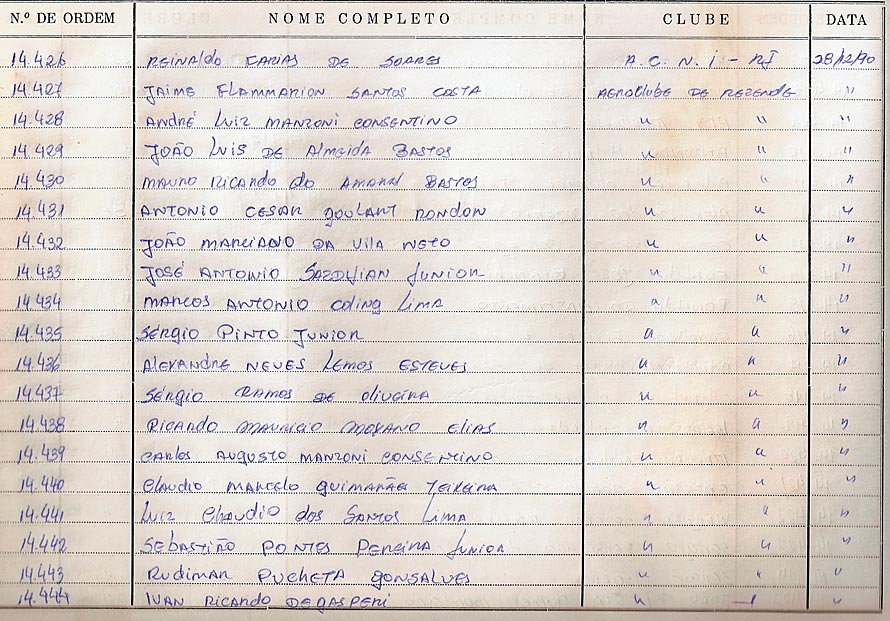 N.º DE ORDEM NOME COMPLETO CLUBE DATA
14.426 REINALDO FARIAS DE SOARES A. C. N. I - RJ 28/12/90
14.427 JAIME FLAMMARION SANTOS COSTA AEROCLUBE DE REZENDE "
14.428 ANDRÉ LUIZ MANZONI CONSENTINO " " "
14.429 JOÃO LUIS DE ALMEIDA BASTOS " " "
14.430 MAURO RICARDO DO AMARAL BASTOS " " "
14.431 ANTONIO CESAR GOULART RONDON " " "
14.432 JOÃO MARCIANO DA VILA NETO " " "
14.433 JOSÉ ANTONIO JUNIOR " " "
14.434 MARCOS ANTONIO COLING LIMA " " "
14.435 SÉRGIO PINTO JUNIOR " " "
14.436 ALEXANDRE NEVES LEMOS ESTEVES " " "
14.437 SÉRGIO RAMOS DE OLIVEIRA " " "
14.438 RICARDO MAURICIO MOYANO ELIAS " " "
14.439 CARLOS AUGUSTO MANZONI CONSENTINO " " "
14.440 CLAUDIO MARCELO GUIMARÃES TEIXEIRA " " "
14.441 LUIZ CLAUDIO DOS SANTOS LIMA " " "
14.442 SEBASTIÃO PONTES PEREIRA JUNIOR " " "
14.443 RUDIMAR PUCHETA GONSALVES " " "
14.444 IVAN RICARDO DEGASPERI " " "